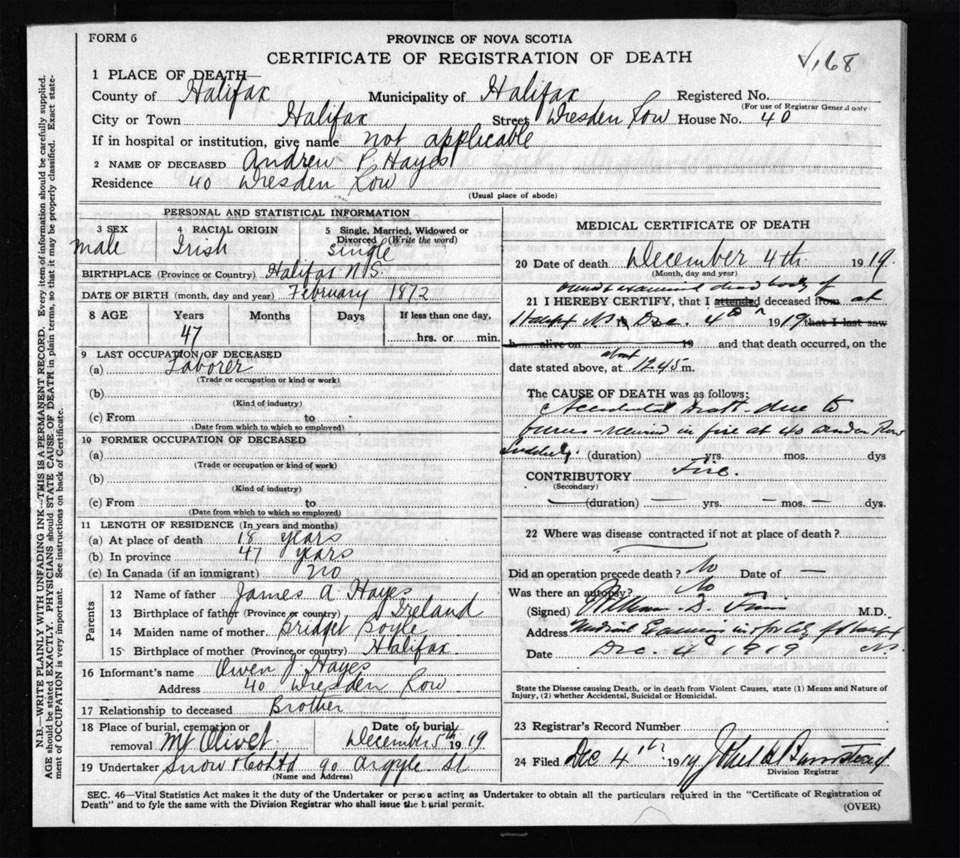 FORM 6
PROVINCE OF NOVA SCOTIA
CERTIFICATE OF REGISTRATION OF DEATH
168
1 PLACE OF DEATH—
County of Halifax Municipality of Halifax Registered No.
(For use of Registrar General only)
City or Town Halifax Street Dresden Row House No. 40
If in hospital or institution, give name not applicable
2 NAME OF DECEASED Andrew P. Hayes
Residence 40 Dresden Row
(Usual place of abode)
PERSONAL AND STATISTICAL INFORMATION
3 SEX 4 RACIAL ORIGIN 5 Single, Married, Widowed or Divorced (Write the word)
Male Irish Single
BIRTHPLACE (Province or Country) Halifax N.S.
DATE OF BIRTH (month, day and year) February 1872
8 AGE Years Months Days If less than one day,
47 hrs. or min.
9 LAST OCCUPATION OF DECEASED
(a) Laborer
(Trade or occupation or kind or work)
(b)
(Kind of industry)
(c) From to
(Date from which to which so employed)
10 FORMER OCCUPATION OF DECEASED
(a)
(Trade or occupation or kind of work)
(b)
(Kind of industry)
(c) From to
(Date from which to which so employed)
11 LENGTH OF RESIDENCE (In years and months)
(a) At place of death 18 years
(b) In province 47 years
(c) In Canada (if an immigrant) no
Parents
12 Name of father James A Hayes
13 Birthplace of father (Province or country) Ireland
14 Maiden name of mother Bridget Boyle
15 Birthplace of mother (Province or country) Halifax
16 Informant's name Owen J. Hayes
Address 40 Dresden Row
17 Relationship to deceased Brother
18 Place of burial, cremation or removal Mt Olivet Date of burial December 5th 1919
19 Undertaker Snow & Co Ltd 90 Argyle St
(Name and Address)
MEDICAL CERTIFICATE OF DEATH
20 Date of death December 4th 1919.
(Month, day and year)
examined dead body of
21 I HEREBY CERTIFY, that I attended deceased from at
Halifax N.S. Dec. 4th 1919 that I last saw
h alive on 19 and that death occurred, on the
date stated above, at about 12.45 m.
The CAUSE OF DEATH was as follows:
Accidental Death due to
burns received in fire at 40 Dresden Row
Suddenly. (duration) yrs. mos. dys
CONTRIBUTORY Fire.
(Secondary)
(duration) — yrs. — mos. — dys.
22 Where was disease contracted if not at place of death?
Did an operation precede death? No Date of —
Was there an autopsy? No
(Signed) William D. Finn M.D.
Address Medical Examiner for City of Halifax N.S.
Date Dec. 4th 1919
State the Disease causing Death, or in death from Violent Causes, state (1) Means and Nature of
Injury, (2) whether Accidental, Suicidal or Homicidal.
23 Registrar's Record Number
24 Filed Dec 4th 1919
Division Registrar
SEC. 46—Vital Statistics Act makes it the duty of the Undertaker or person acting as Undertaker to obtain all the particulars required in the "Certificate of Registration of
Death" and to fyle the same with the Division Registrar who shall issue the burial permit.
(OVER)
N.B.—WRITE PLAINLY WITH UNFADING INK—THIS IS A PERMANENT RECORD. Every item of information should be carefully supplied.
AGE should be stated EXACTLY. PHYSICIANS should STATE CAUSE OF DEATH in plain terms, so that it may be properly classified. Exact state-
ment of OCCUPATION is very important. See instructions on back of Certificate.